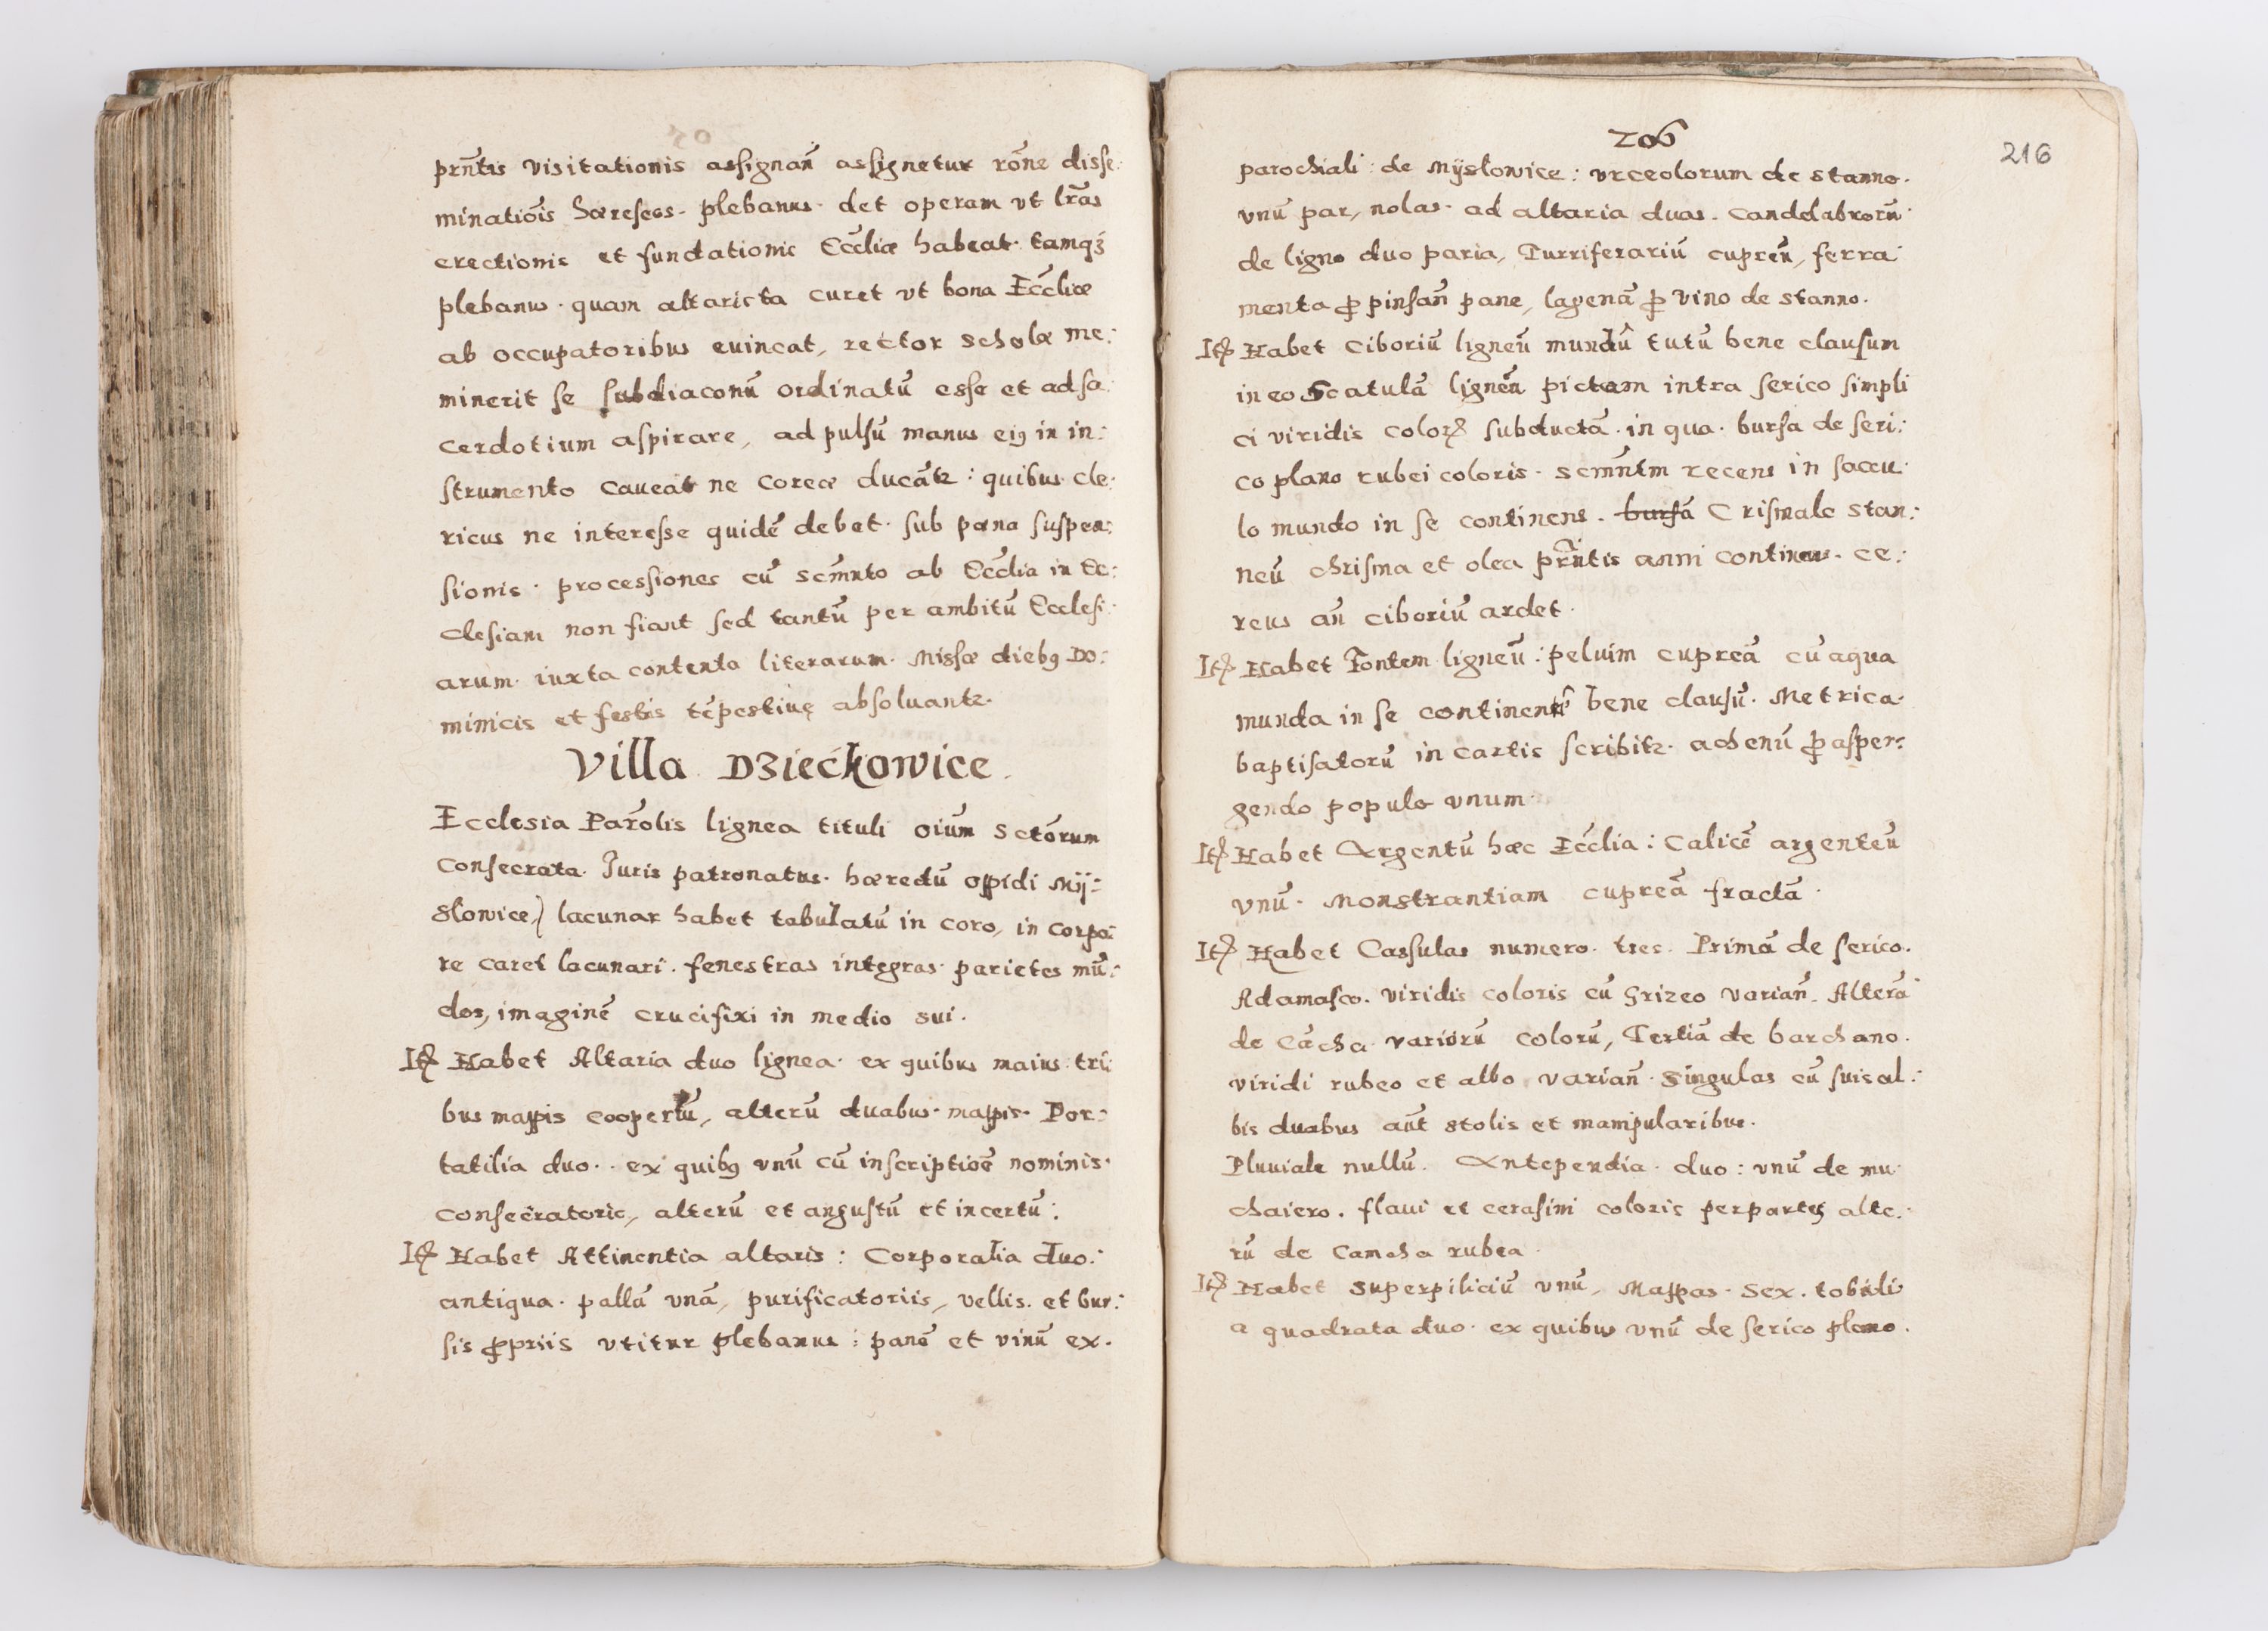 prñtis visitationis assignañ assignetur rõne disse:
minatiõis hæreseos. plebanus. det operam vt lr̃as
erectionis et fundationis Eccl̃iæ habeat. tamqȝ
plebanus. quam altarista curet vt bona Eccl̃iæ
ab occupatoribus euincat, rector scholæ me:
minerit se subdiaconũ ordinatũ esse et ad sa:
cerdotium aspirare, ad pulsũ manus eiꝰ in in:
strumento caueat ne coreæ ducãtr: quibus cle:
ricus ne interesse quidẽ debet. sub pœna suspen:
sionis. processiones cũ scm̃nto ab Eccl̃ia in Ec:
clesiam non fiant sed tantũ per ambitũ Ecclesi:
arum. iuxta contenta literarum. Missæ diebꝰ Do:
minicis et festis tẽpestiuę absoluantr.
Villa Dziećkowice.
Ecclesia Parõlis lignea tituli oiũm sctõrum
consecrata. Juris patronatus. hæredũ oppidi Mÿ:
slowice,) lacunar habet tabulatũ in coro, in corpo:
re caret lacunari. fenestras integras. parietes mũ:
dos, imaginẽ crucifixi in medio sui.
Itꝭ Habet Altaria duo lignea. ex quibus maius tri:
bus mappis coopertũ, alterũ duabus. mappis. Por:
tatilia duo.. ex quibꝰ vnũ cũ inscriptiõe nominis.
consecratoris, alterũ et angustũ et incertũ:
Itꝭ Habet Attinentia altaris: Corporalia duo:
antiqua. pallã vnã, purificatoriis, vellis. et bur:
sis ꝓpriis vtitur plebanus: panẽ et vinũ ex.
206
216
parochiali: de Mÿslowice: vrceolorum de stanno.
vnũ par, nolas. ad altaria duas. candelabrorũ.
de ligno duo paria, Turriferariũ cupreũ, ferra:
menta ꝓ pinsañ pane, lagenã ꝓ vino de stanno.
Itꝭ Habet Ciboriũ ligneũ mundũ tutũ bene clausum
in eo Scatulã ligneã pictam intra serico simpli
ci viridis colorꝭ subductã. in qua. bursa de seri:
co plano rubei coloris. scm̃ntm recens in saccu:
lo mundo in se continens. bursã Crismale stan:
neũ chrisma et olea prñtis anni continens. ce:
reus añ ciboriũ ardet.
Itꝭ Habet Fontem ligneũ: peluim cupreã cũ aqua
munda in se continentẽ bene clausũ. Metrica.
baptisatorũ in cartis scribitr. achenũ ꝓ asper:
gendo populo vnum.
Itꝭ Habet Argentũ hæc Eccl̃ia: Calicẽ argenteũ
vnũ. Monstrantiam cupreã fractã.
Itꝭ Habet Cassulas numero. tres. Primã de serico.
Adamasco. viridis coloris cũ grizeo variañ. Alterã
de Cãcha. variorũ colorũ, Tertiã de barchano.
viridi rubeo et albo variañ. Singulas cũ suis al:
bis duabus aũt stolis et manipularibus.
Pluuiale nullũ. Antependia. duo: vnũ de mu:
chaiero. flaui et cerasini coloris per partes alte:
rũ de Camcha rubea.
Itꝭ Habet superpiliciũ vnũ, Mappas. sex. tobali
a quadrata duo. ex quibus vnũ de serico plano.